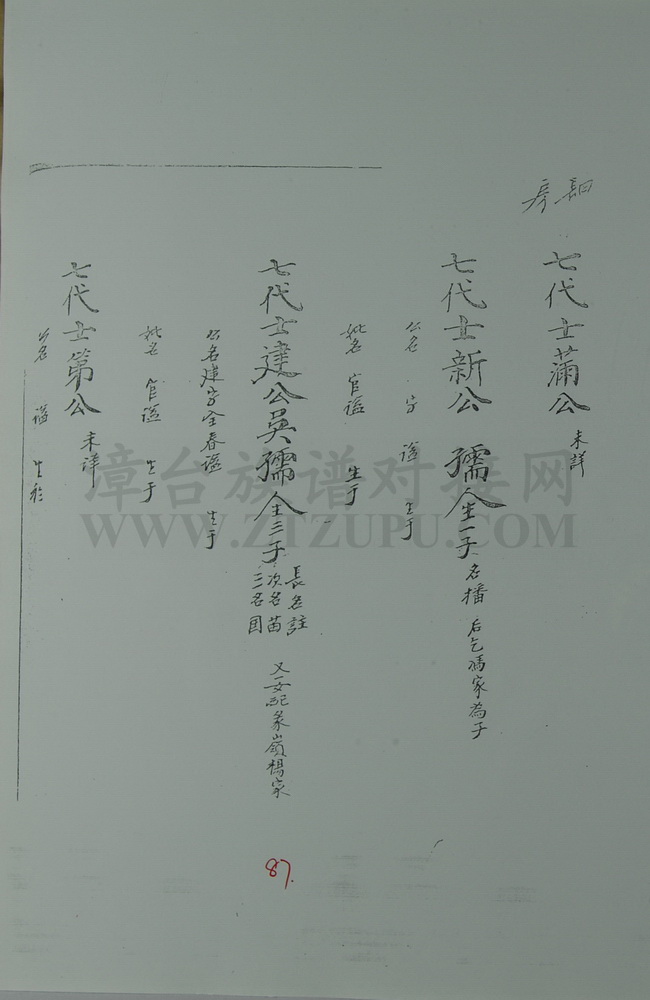 房
七代士蒲公 未詳
七代士新公 孺人生一子 名播 后乞馮家為子
公名 字 謚 生于
妣名 官謚 生于
七代士建公吳孺人生三子
長名註
次名苗
三名国
又一女配 嶺楊家
公名建字全春謚 生于
妣名 官謚 生于
七代士第公 未詳
公名 謚 生於
87.
漳台族谱对接网
WWW.ZTZUPU.COM